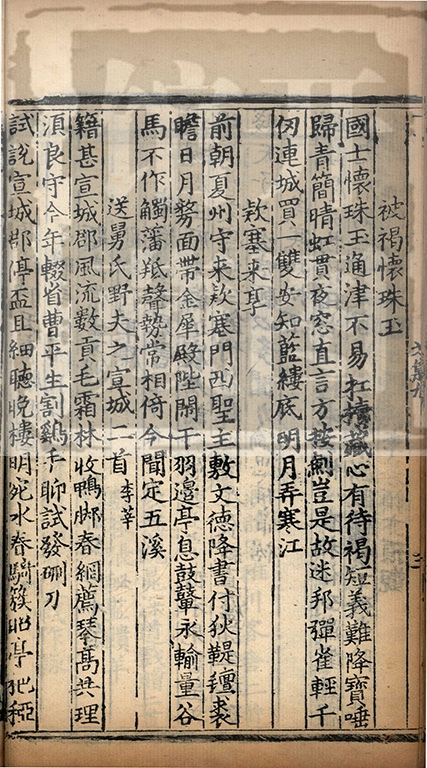 被褐懷珠玉
國士懷珠玉通津不易扛擕藏心有待褐短義難降寶唾
歸青簡晴虹貫夜窓直言方按劒豈是故迷邦彈雀輕千
仭連城買一雙安知藍縷底明月弄寒江
欵塞来享
前朝夏州守来欵塞門西聖主敷文德降書付狄鞮氊裘
瞻日月剺面帶金犀殿陛閒干羽邊亭息鼓鼙永輸量谷
馬不作觸藩羝聲勢常相倚今聞定五溪
送舅氏野夫之宣城二首 李莘
籍甚宣城郡風流數貢毛霜林收鴨脚春網薦琴髙共理
湏良守今年輟省曹平生割鷄手聊試發硎刀
試說宣城郡停盃且細聽晚樓明宛水春騎簇昭亭䆉稏